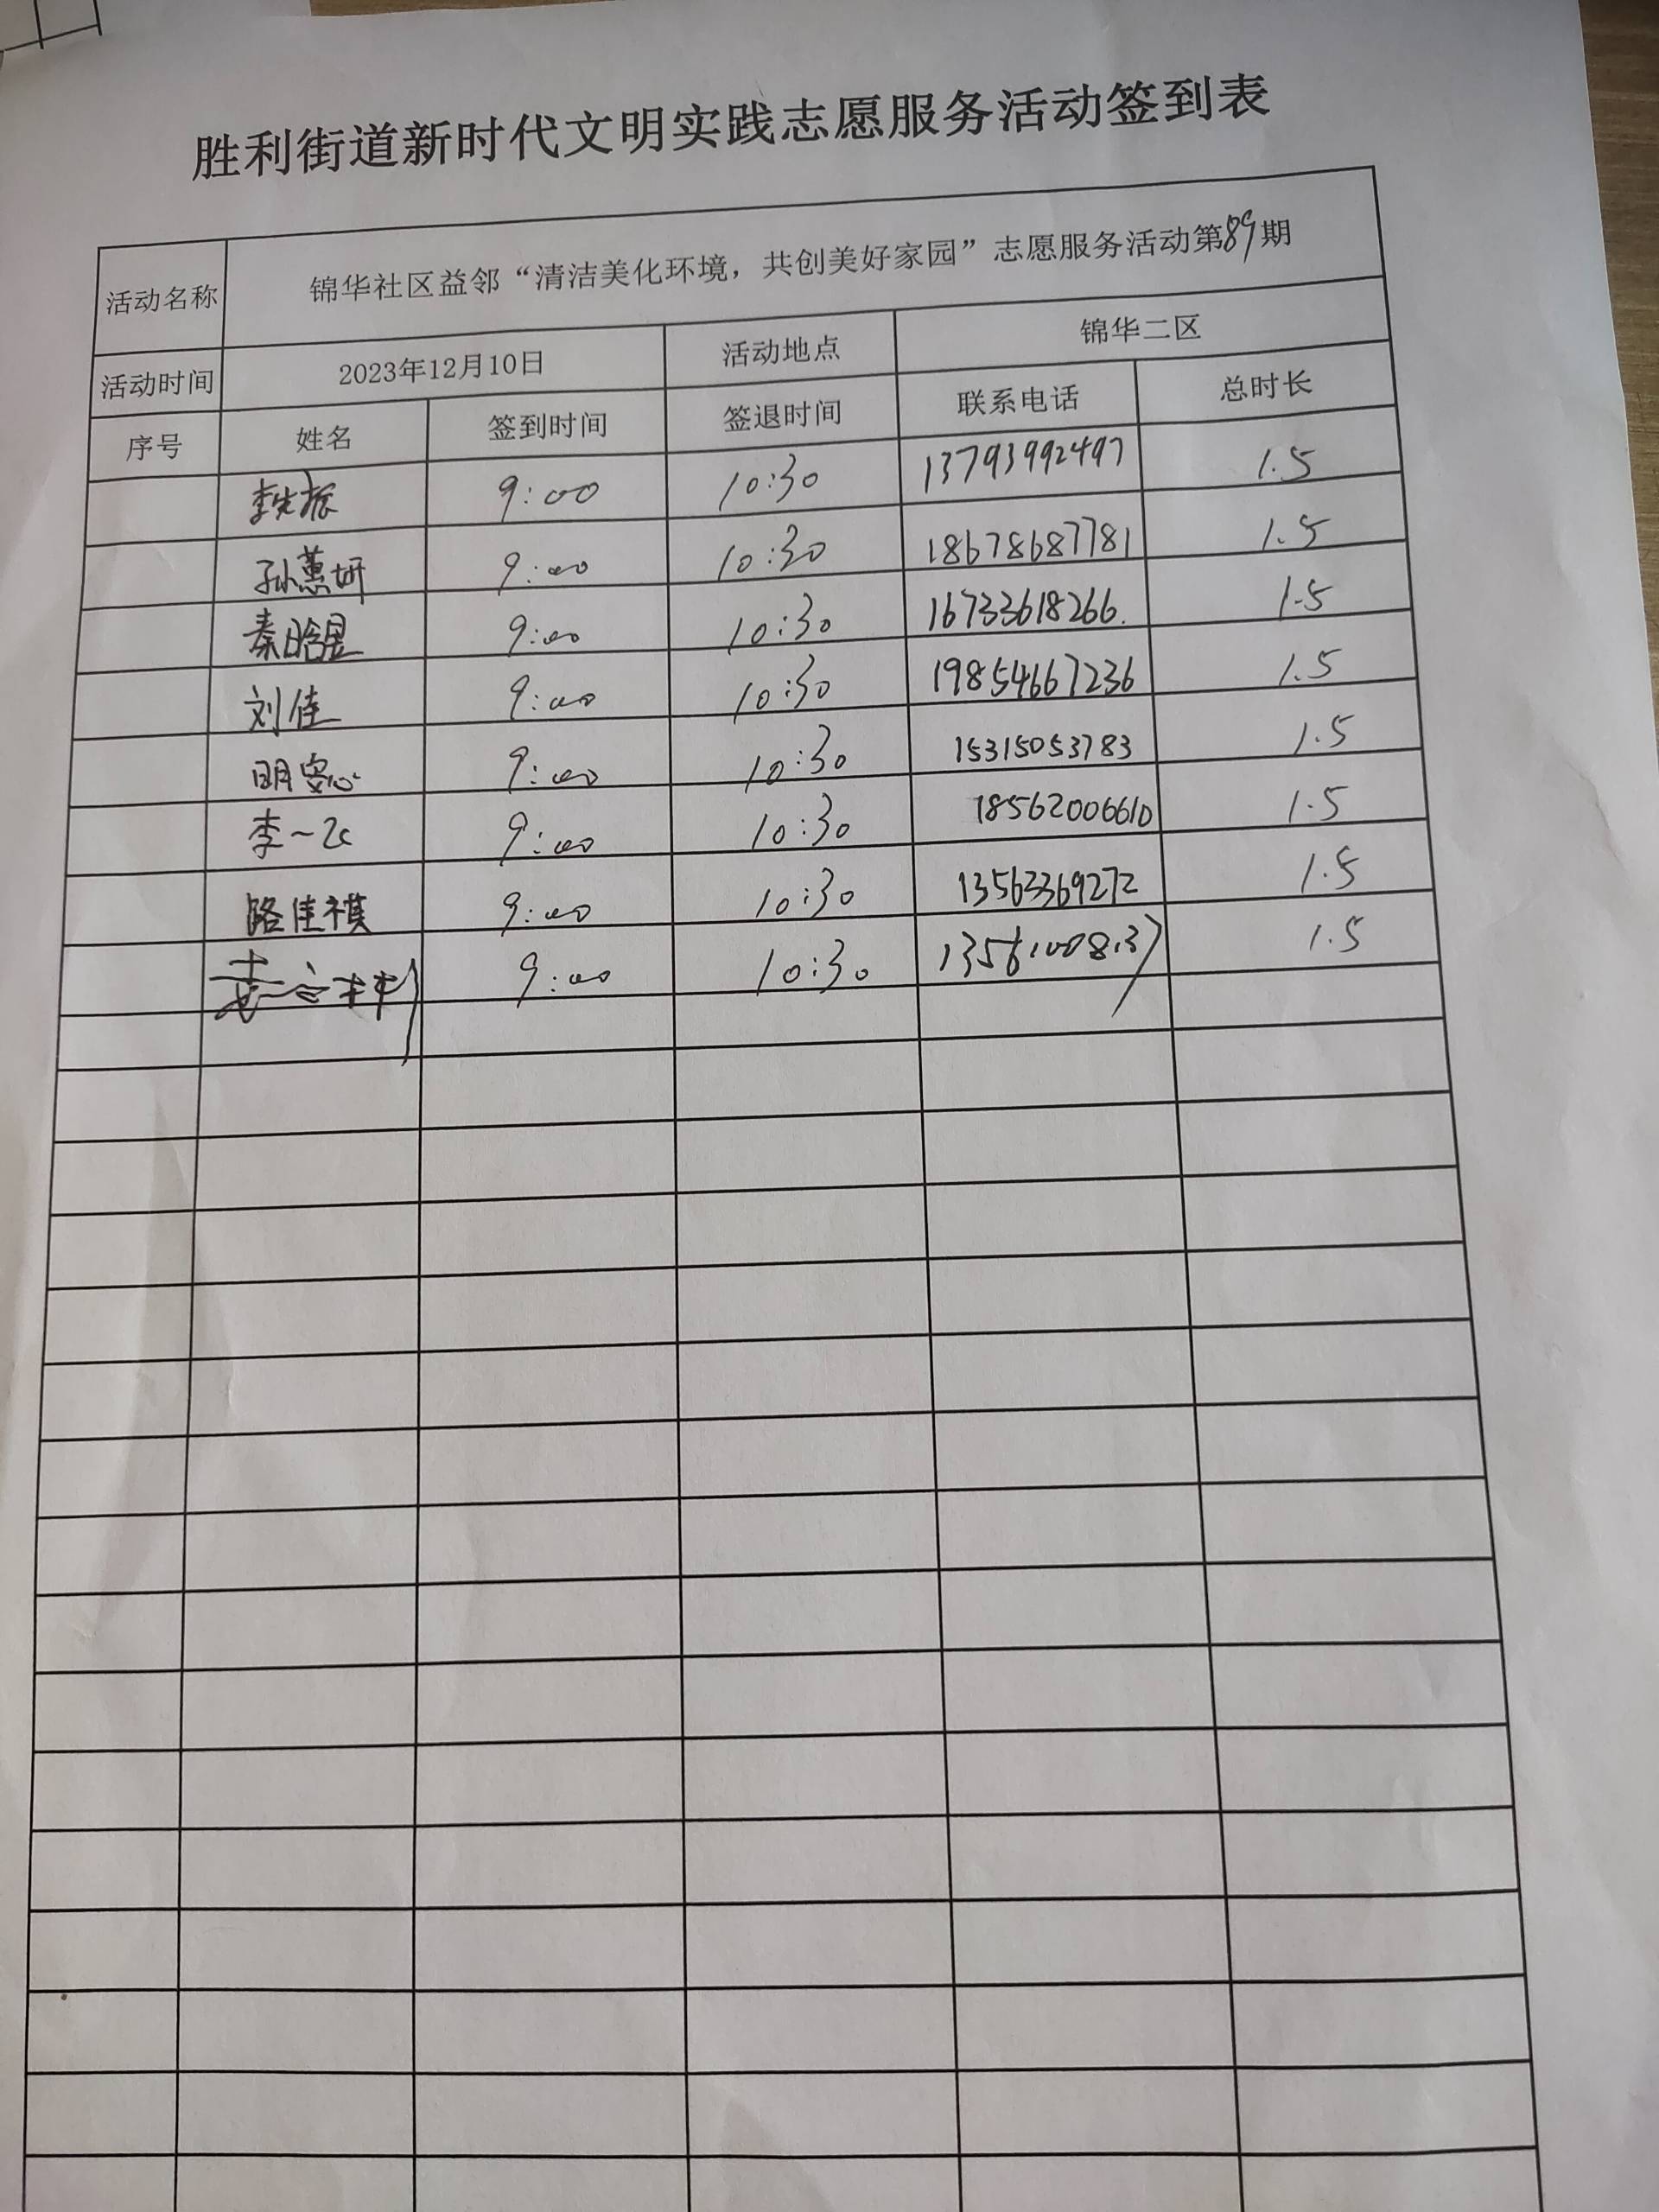 胜利街道新时代文明实践志愿服务活动签到表
活动名称 锦华社区益邻“清洁美化环境，共创美好家园”志愿服务活动第89期
活动时间 2023年12月10日 活动地点 锦华二区
序号 姓名 签到时间 签退时间 联系电话 总时长
李先振 9:00 10:30 13793992497 1.5
孙蕙妍 9:00 10:30 18678687781 1.5
秦晗昱 9:00 10:30 16733618266. 1.5
刘佳 9:00 10:30 19854667236 1.5
明安心 9:00 10:30 15315053783 1.5
李一飞 9:00 10:30 18562006610 1.5
路佳祺 9:00 10:30 13563369272 1.5
9:00 10:30 1.5